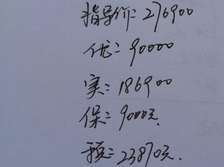 指导价: 276900
优: 90000
实: 186900
保: 9000元
预: 23870元.